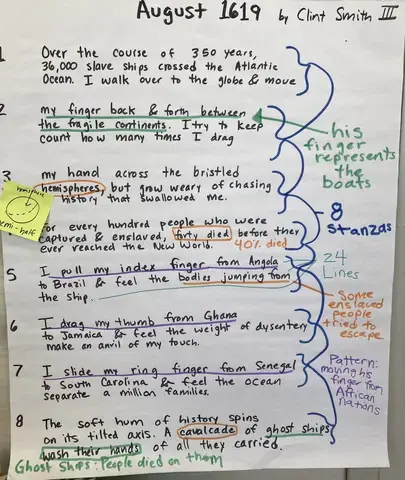 August 1619 by Clint Smith III
1
Over the course of 350 years,
36,000 slave ships crossed the Atlantic
Ocean. I walk over to the globe & move
2
my finger back & forth between
the fragile continents. I try to keep
count how many times I drag
his
finger
represents
the
boats
3
my hand across the bristled
hemispheres, but grow weary of chasing
history that swallowed me.
hemisphere
hemi-half
8
Stanzas
For every hundred people who were
captured & enslaved, forty died before they
ever reached the New World. 40% died
24
Lines
5
I pull my index finger from Angola
to Brazil & feel the bodies jumping from
the ship.
Some
enslaved
people
tried to
escape
6
I drag my thumb from Ghana
to Jamaica & feel the weight of dysentery
make an anvil of my touch.
Pattern:
moving his
finger from
African
nations
7
I slide my ring finger from Senegal
to South Carolina & feel the ocean
separate a million families.
8
The soft hum of history spins
on its tilted axis. A cavalcade of ghost ships
wash their hands of all they carried.
Ghost Ships: People died on them